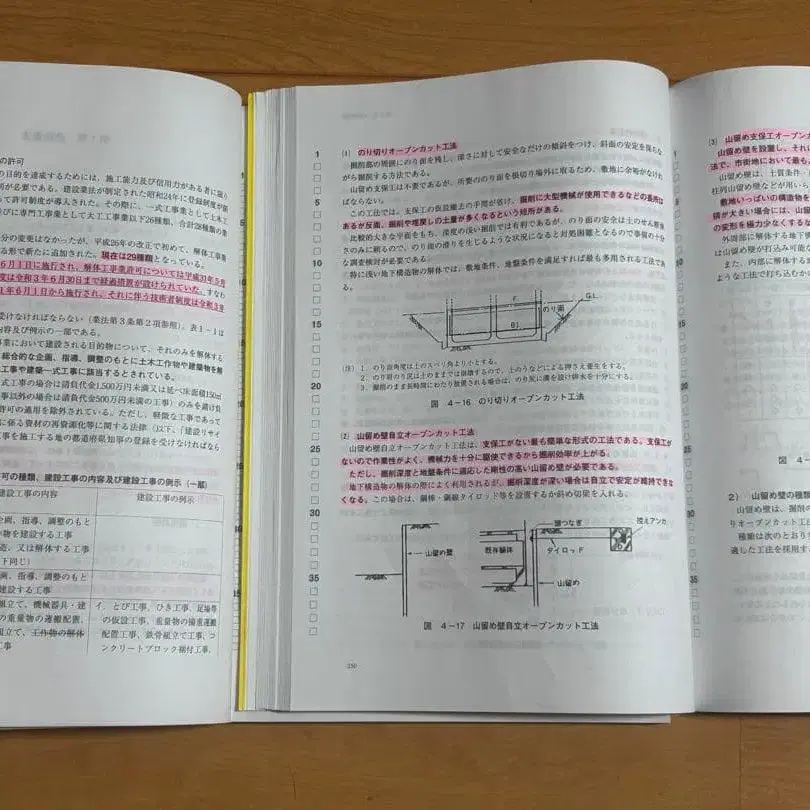 の許可
の目的を達成するためには、施工能力及び信用力がある者に限り
が必要である。建設業法が制定された昭和24年に登録制度が
って許可制度が導入された。その際に、一式工事として土木工
びに専門工事業として大工工事業以下26種類、合計28種類の業
分の変更はなかったが、平成26年の改正で初めて、解体工事業
る形で新たに追加された。現在は29種類となっている。
6月1日に施行され、解体工事業許可については平成31年5月
度は令和3年6月30日まで経過措置が設けられていた。すなわ
1年6月1日から施行され、それに伴う技術者制度は令和3年
受けなければならない（業法第3条第2項参照）。表1－1は
内容及び例示の一部である。
事業において建設される目的物について、それのみを解体する
総合的な企画、指導、調整のもとに土木工作物や建築物を解
工事や建築一式工事に該当するとされている。
式工事の場合は請負代金1,500万円未満又は延べ床面積150㎡
事以外の場合は請負代金500万円未満の工事）のみを請け負
許可の適用を除外されている。ただし、軽微な工事であって
に係る資材の再資源化等に関する法律（以下、「建設リサイ
事を施工する地の都道府県知事の登録を受けなければなら
可の種類、建設工事の内容及び建設工事の例示（一部）
建設工事の内容
建設工事の例示
企画、指導、調整のもと
物を建設する工事
造、又は解体する工事
下同じ）
画、指導、調整のもと
建設する工事
組立て、機械器具・建
の重量物の運搬配置、
組立て、工作物の解体
事
イ．とび工事、ひき工事、足場等
の仮設工事、重量物の揚重運搬
配置工事、鉄骨組立て工事、コ
ンクリートブロック据付工事、
1
5
10
15
20
25
30
35
(1) のり切りオープンカット工法
掘削部の周囲にのり面を残し、深さに対して安全なだけの傾斜をつけ、斜面の安定を保ちな
がら掘削する方法である。
山留め支保工は不要であるが、所要ののり面を根切り場外に取るため、敷地に余裕がなけれ
ばならない。
この工法では、支保工の仮設撤去の手間が省け、掘削に大型機械が使用できるなどの長所は
あるが反面、掘削や埋戻しの土量が多くなるという短所がある。
比較的大きな平面をもち、深度の浅い掘削では有利であるが、のり面の安全は土のせん断強
さのみに頼るので、のり面の滑りを生じるような状況になると対処困難となるので事前の十分
な調査検討が必要である。
特に浅い地下構造物の解体では、敷地条件、地盤条件を満足すれば最も多用される工法であ
る。
F.
G.L
のり面
B1
(注) 1．のり面角度は土のスベリ角より小とする。
2．のり面のり尻は土のままでは崩壊するので、土のうなどによる押さえ養生をする。
3．掘削のまま長時間にわたり放置される場合は、のり尻に溝を設け排水を十分にする。
図 4－16 のり切りオープンカット工法
(2) 山留め壁自立オープンカット工法
山留め壁自立オープンカット工法は、支保工がない最も簡単な形式の工法である。支保工が
ないので作業性がよく、機械力を十分に駆使できるから掘削効率が上がる。
ただし、掘削深度と地盤条件に適応した剛性の高い山留め壁が必要である。
地下構造物の解体の壁によく利用されるが、掘削深度が深い場合は自立で安定が維持できな
くなる。この場合は、鋼棒・鋼線タイロッド等を設置するか斜め切梁を入れる。
山留め壁
頭つなぎ
控えアンカ
既存躯体
タイロッド
山留め
図 4－17 山留め壁自立オープンカット工法
250
1
5
10
15
20
25
30
35
(3) 山留め支保工オープ
山留め壁を設置し、それに
法で、市街地において最も
山留め壁は、土質条件、
柱列山留め壁などが用いら
敷地いっぱいの構造物を
積が大きい場合には、山留
の変形を極力少なくするな
外周部に解体する地下構
は山留め壁が打込み可能な
また、内部に解体する地
ような工法で打ち込むかな
図 4－
2） 山留め壁の種類
山留め壁は、掘削の
りオープンカット工法
種類は次のとおり
適した工法を採用す